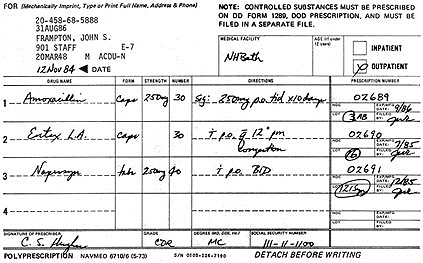 FOR (Mechanically Imprint, Type or Print Full Name, Address & Phone)
20-458-68-5888
31AUG86
FRAMPTON, JOHN S.
901 STAFF E-7
20MAR48 M ACDU-N
12 Nov 84 ◄ DATE
NOTE: CONTROLLED SUBSTANCES MUST BE PRESCRIBED
ON DD FORM 1289, DOD PRESCRIPTION, AND MUST BE
FILED IN A SEPARATE FILE.
MEDICAL FACILITY
NH Beth
AGE (if under 12 years)
INPATIENT
OUTPATIENT
DRUG NAME FORM STRENGTH NUMBER DIRECTIONS PRESCRIPTION NUMBER
1 Amoxicillin Caps 250mg 30 Sig: 250mg po tid x10 days 02689
NDC EXP/MFG DATE: 9/86
LOT FILLED BY:
2 Entex L.A. Caps 30 † p.o. q 12° prn 02690
congestion
NDC EXP/MFG DATE: 7/85
LOT FILLED BY:
3 Naprosyn tabs 250mg 40 † p.o. BID 02691
NDC EXP/MFG DATE: 12/85
LOT FILLED BY:
4
NDC EXP/MFG DATE:
LOT FILLED BY:
SIGNATURE OF PRESCRIBER GRADE DEGREE (MD, DDS, etc.) SOCIAL SECURITY NUMBER
C. S. CDR MC 111-11-1100
POLYPRESCRIPTION NAVMED 6710/6 (5-73) S/N 0105-206-7190 DETACH BEFORE WRITING